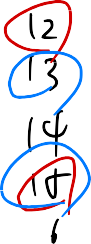 12
13
14
15
6